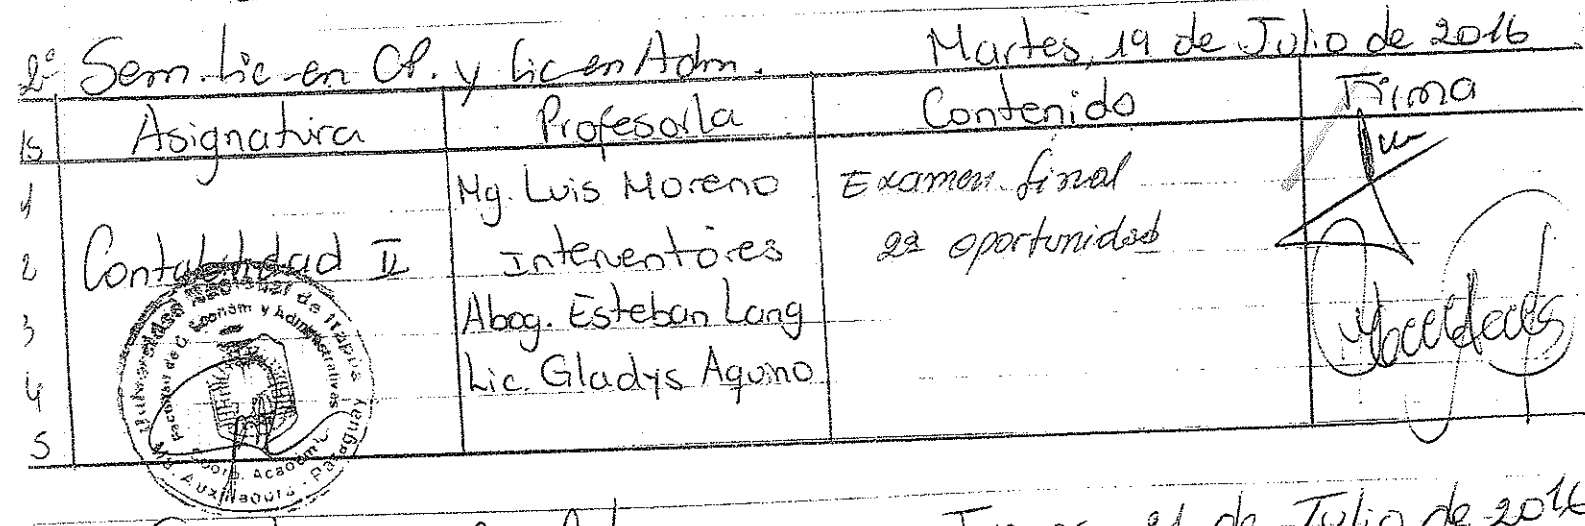 2º Sem Lic en CP. y Lic en Adm. Martes, 19 de Julio de 2016
Hs Asignatura Profesor/a Contenido Firma
1 Mg. Luis Moreno Examen final
2 Contabilidad II Interventores 2ª oportunidad
3 Abog. Esteban Lang
4 Lic. Gladys Aquino
5
Universidad Nacional de Itapúa
Facultad de C. Econom y Administrativas
Coord. Académ
Ma. Auxiliadora - Paraguay
21 de Julio de 2016